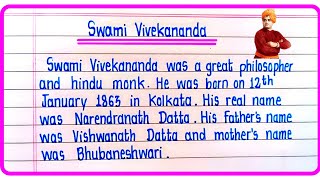 Swami Vivekananda
Swami Vivekananda was a great philosopher
and hindu monk. He was born on 12th
January 1863 in Kolkata. His real name
was Narendranath Datta. His Father's name
was Vishwanath Datta and mother's name
was Bhubaneshwari.